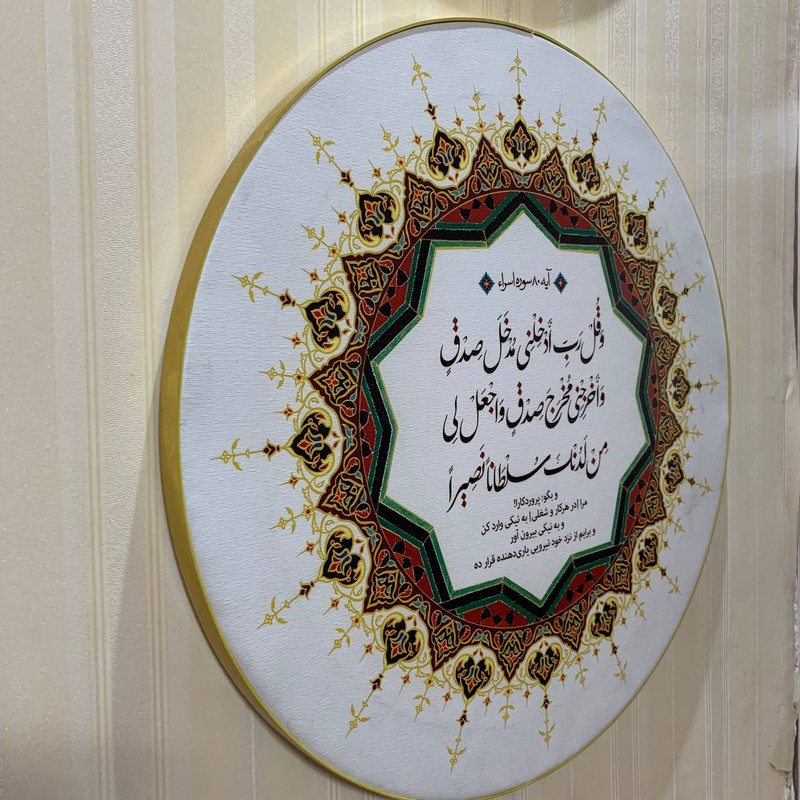 آیه ۸۰ سوره اسراء
وَقُل رَبِّ أَدْخِلْنی مُدْخَلَ صِدْقٍ
وَأَخْرِجْنی مُخْرَجَ صِدْقٍ وَاجْعَل لی
مِن لَدُنکَ سُلْطاناً نَصِیراً
و بگو: پروردگارا!
مرا [در هرکار و شغلی] به نیکی وارد کن
و به نیکی بیرون آور
و برایم از نزد خود نیرویی یاری‌دهنده قرار ده